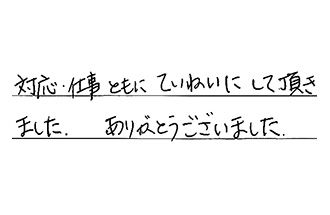 対応・仕事ともにていねいにして頂き
ました. ありがとうございました.